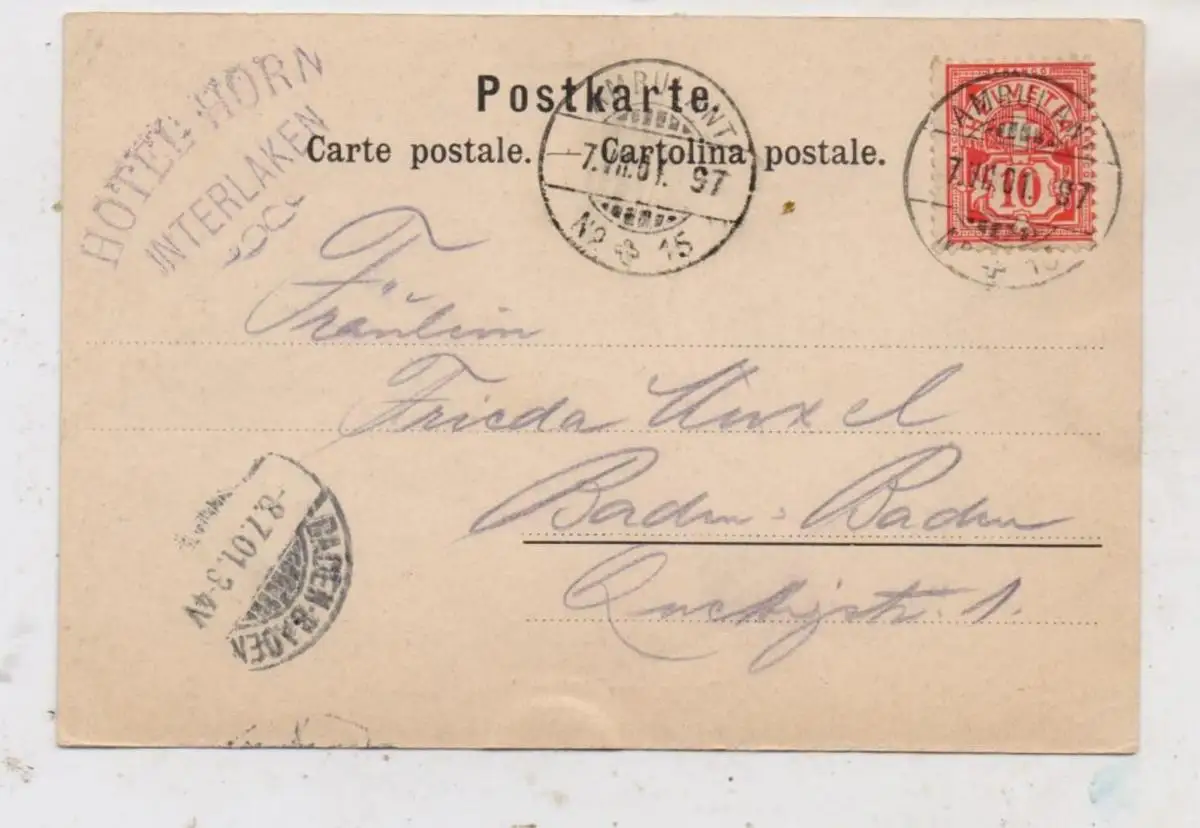 HOTEL HORN
INTERLAKEN
Postkarte.
Carte postale. — Cartolina postale.
AMBULANT
7.VII.01. 97
No 15
FRANCO
10
AMBULANT
7.VII.01. 97
No 15
Fräulein
Frieda
Baden-Baden
1.
BADEN-BADEN
8.7.01. 3-4V